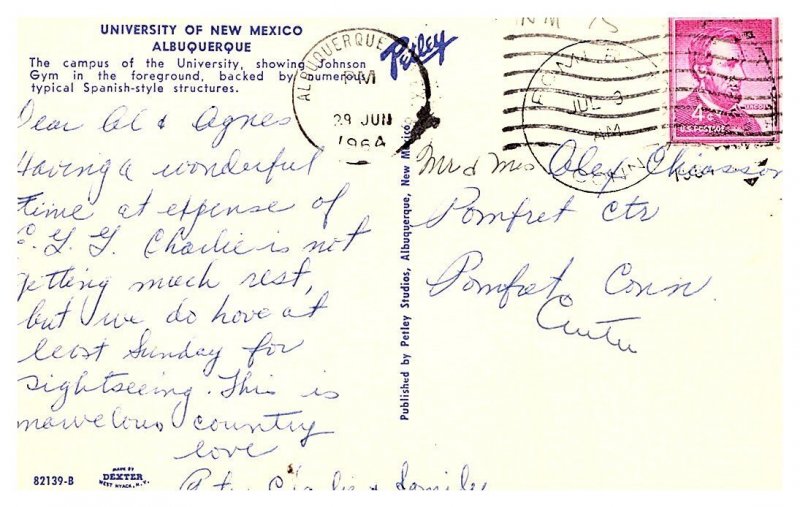 UNIVERSITY OF NEW MEXICO
ALBUQUERQUE
The campus of the University, showing Johnson
Gym in the foreground, backed by numerous
typical Spanish-style structures.
Dear Al & Agnes
Having a wonderful
time at expense of
Charlie is not
getting much rest,
but we do have at
least Sunday for
sightseeing. This is
marvelous country
love
Charlie & Family
82139-B
MADE BY
DEXTER
WEST NYACK, N.Y.
Published by Petley Studios, Albuquerque, New Mexico
Petley
ALBUQUERQUE
PM
29 JUN
1964
JUL 3
AM
CONN
4¢
U.S. POSTAGE
LINCOLN
Mr & Mrs Alex Chiasson
Pomfret Ctr
Pomfret Conn.
Center